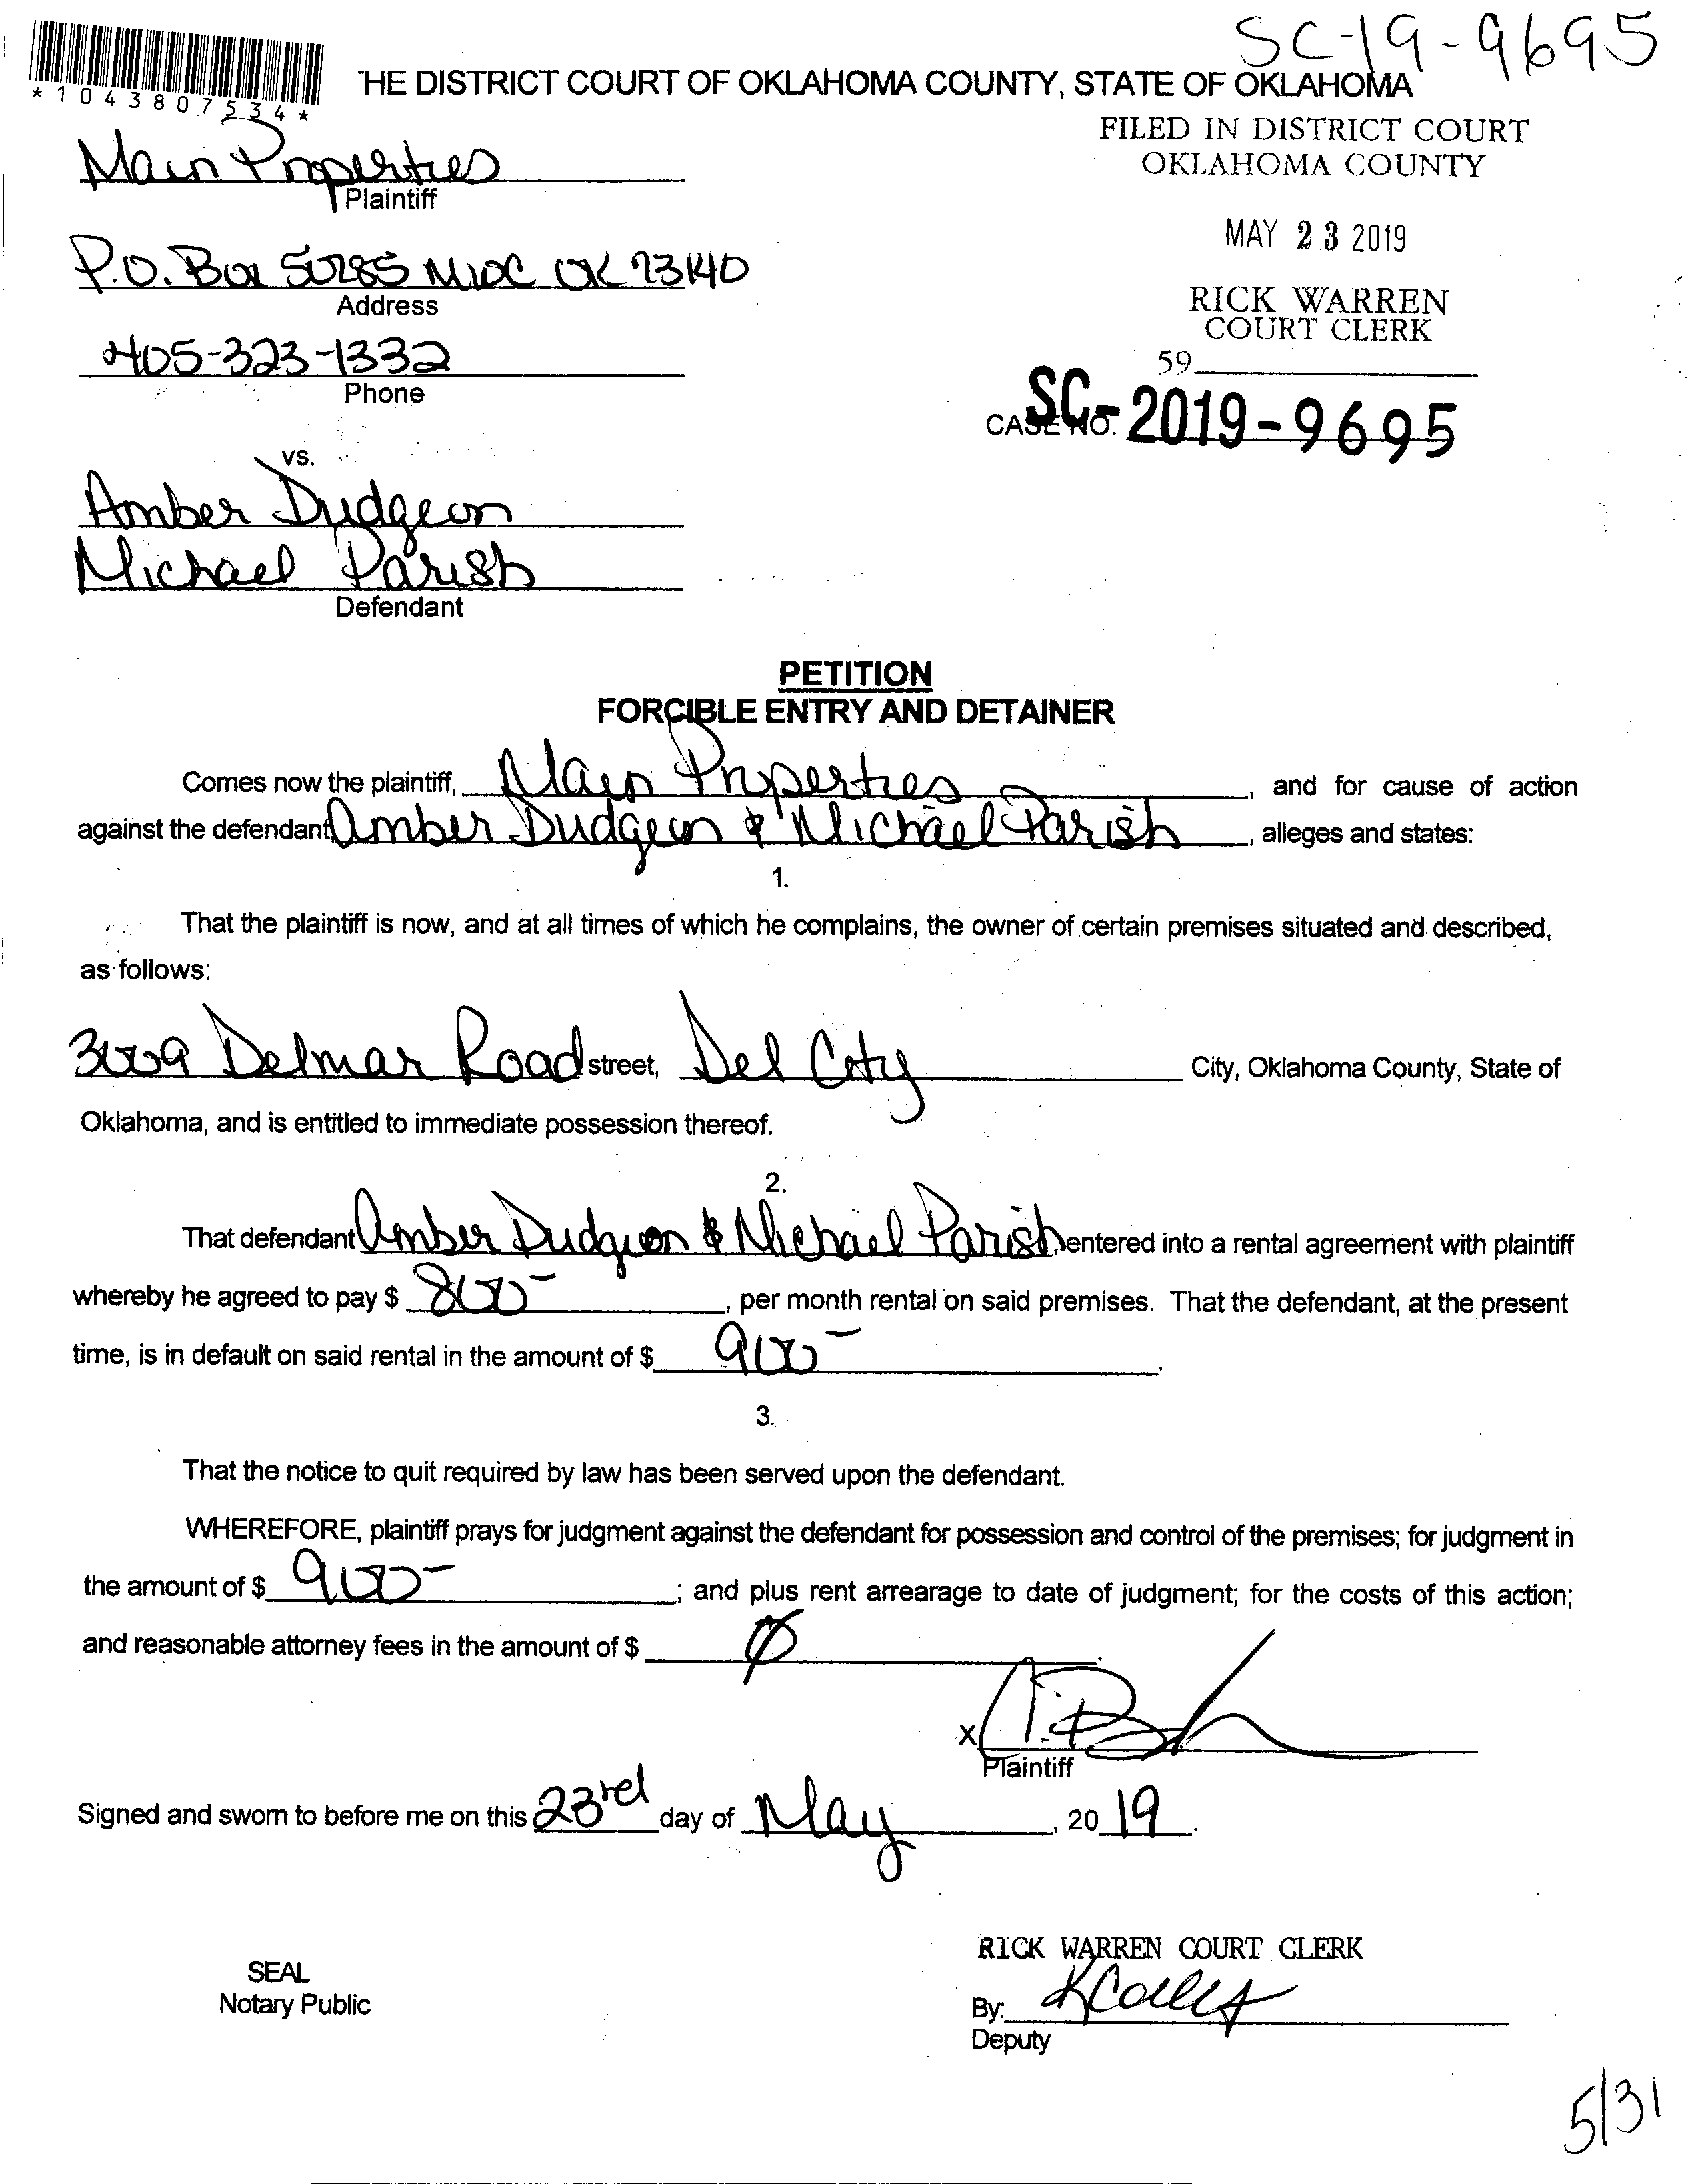 SC-19-9695
*1043807534*
THE DISTRICT COURT OF OKLAHOMA COUNTY, STATE OF OKLAHOMA
FILED IN DISTRICT COURT
OKLAHOMA COUNTY
MAY 23 2019
RICK WARREN
COURT CLERK
59
CASE NO. SC-2019-9695
Main Properties
Plaintiff
P.O. Box 50285 MWC OK 73140
Address
405-323-1332
Phone
vs.
Amber Dudgeon
Michael Parish
Defendant
PETITION
FORCIBLE ENTRY AND DETAINER
Comes now the plaintiff, Main Properties, and for cause of action
against the defendant Amber Dudgeon & Michael Parish, alleges and states:
1.
That the plaintiff is now, and at all times of which he complains, the owner of certain premises situated and described,
as follows:
3009 Delmar Road street, Del City City, Oklahoma County, State of
Oklahoma, and is entitled to immediate possession thereof.
2.
That defendant Amber Dudgeon & Michael Parish entered into a rental agreement with plaintiff
whereby he agreed to pay $ 800-, per month rental on said premises. That the defendant, at the present
time, is in default on said rental in the amount of $ 900-.
3.
That the notice to quit required by law has been served upon the defendant.
WHEREFORE, plaintiff prays for judgment against the defendant for possession and control of the premises; for judgment in
the amount of $ 900-; and plus rent arrearage to date of judgment; for the costs of this action;
and reasonable attorney fees in the amount of $ Ø.
X
Plaintiff
Signed and sworn to before me on this 23rd day of May, 2019.
RICK WARREN COURT CLERK
SEAL
Notary Public
By:
Deputy
5/31